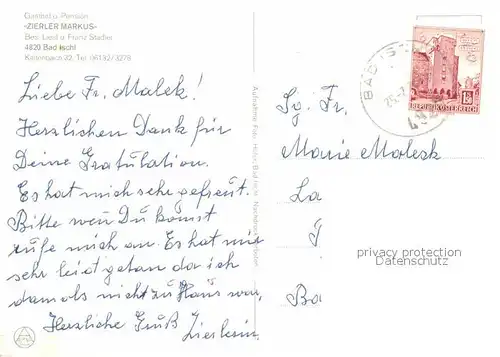 Gasthof u. Pension
-ZIERLER MARKUS-
Bes. Liesl u. Franz Stadler
4820 Bad Ischl
Kaltenbach 22, Tel. 06132/3278
Liebe Fr. Malek!
Herzlichen Dank für
Deine Gratulation.
Es hat mich sehr gefreut.
Bitte wen Du kömst
rufe mich an. Es hat mir
sehr leid getan da ich
damals nicht zu Haus war,
Herzliche Gruß
Zierlerin.
Sg. Fr.
Marie Maleck
La
Ba
REPUBLIK ÖSTERREICH
privacy protection
Datenschutz